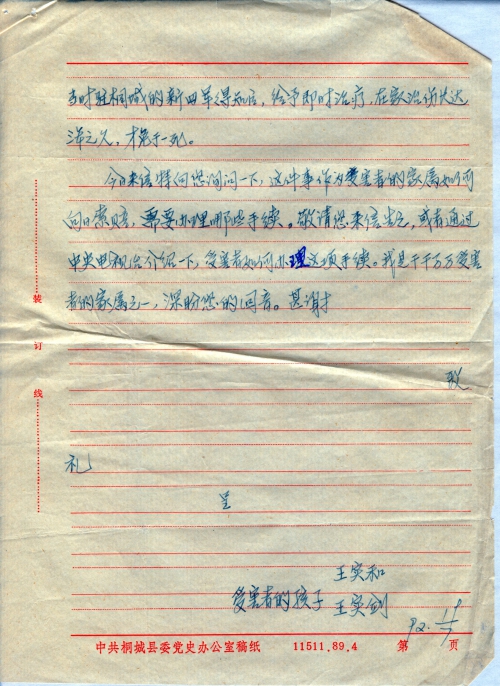 当时驻桐城的新四军得知后，给予即时治疗，在家治伤长达
半年之久，才免于一死。
今日来信特向您询问一下，这件事作为受害者的家属如何
向日索赔，需要办理哪些手续。敬请您来信告之，或者通过
中央电视台介绍一下，受害者如何办理这项手续。我是千千万万受害
者的家属之一，深盼您的回音。甚谢！
致
礼
呈
王实和
受害者的孩子 王实剑
92.
装
订
线
中共桐城县委党史办公室稿纸 11511.89.4 第 页